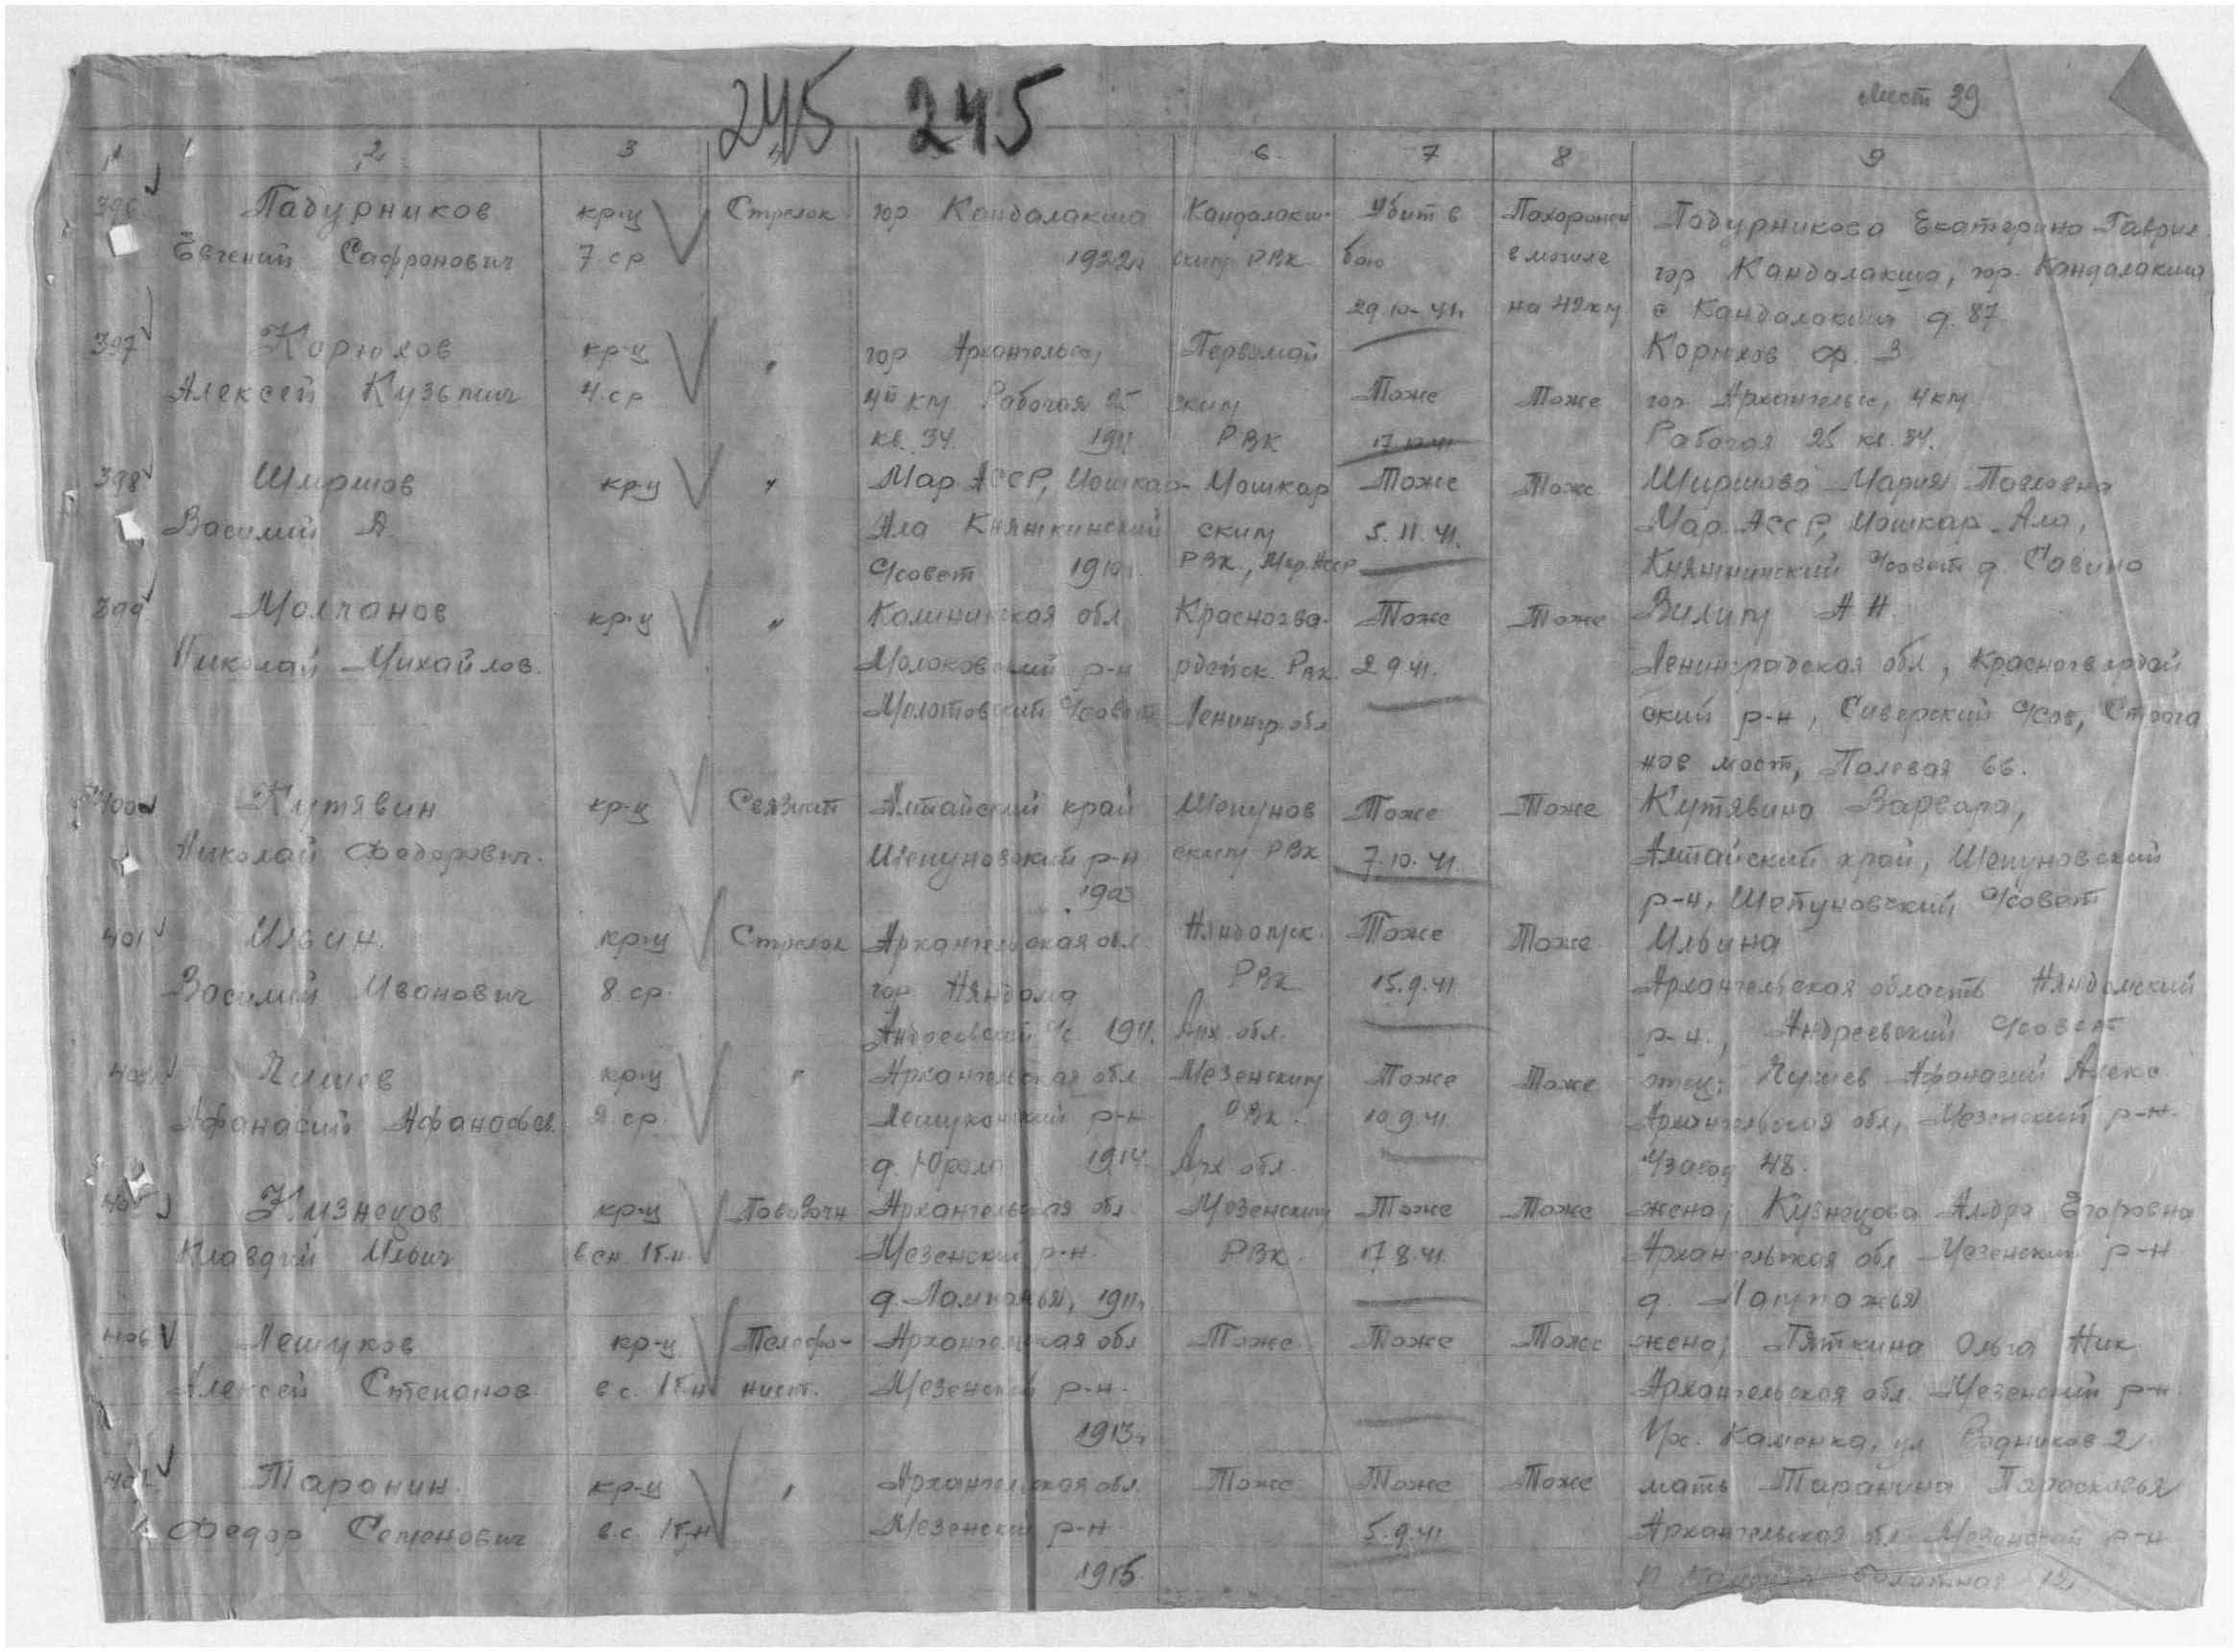 245 245
Лист 39
1 2 3 4 6 7 8 9
396 Падурников кр-ц Стрелок гор Кандалакша Кандалакш- Убит в Похоронен Падурникова Екатерина Гаврил.
Евгений Сафронович 7 ср 1922г ским РВК бою в могиле гор. Кандалакша, гор. Кандалакша
29.10-41г. на 42 км с Кандалакша д. 87
397 Корюхов кр-ц " гор Архангельск, Первомай Корюхов Ф. З
Алексей Кузьмич 4 ср 4й км Рабочая 25 ским Тоже Тоже гор. Архангельск, 4 км
кв. 34. 1911 РВК 17.10.41 Рабочая 25 кв. 34.
398 Ширшов кр-ц " Мар АССР, Иошкар- Иошкар Тоже Тоже Ширшова Мария Павловна
Василий А. Ала Княжнинский ским 5.11.41. Мар. АССР, Иошкар-Ала,
с/совет 1910г. РВК., Мар. АССР Княжнинский с/совет д. Савино
399 Молчанов кр-ц " Калининская обл Красногва- Тоже Тоже А Н.
Николай Михайлов. Молоковский р-н рдейск. РВК. 2 9 41. Ленинградская обл, Красногвардей
Молотовский с/совет Ленингр. обл ский р-н, Сиверский с/сов, Строга
нов мост, Полевая 66.
400 Кутявин кр-ц Связист Алтайский край Шепунов Тоже Тоже Кутявина Варвара,
Николай Федорович. Шепуновский р-н ским РВК 7.10.41. Алтайский край, Шепуновский
р-н, Шепуновский с/совет
401 Ильин. кр-ц Стрелок Архангельская обл. Няндомск. Тоже Тоже Ильина
Василий Иванович 8 ср. гор. Няндома РВК 15.9.41 Архангельская область Няндомский
Андреевский с/с. 1911. Арх. обл. р-н., Андреевский с/совет
кр-ц " Архангельская обл Мезенским Тоже Тоже отец: Афанасий Алекс.
Афанасий Афанасьев. 2 ср. Лешуконский р-н РВК. 10.9.41. Архангельская обл, Мезенский р-н.
д. Юрома 1914. Арх обл. 48.
405 Кузнецов кр-ц Повозочн Архангельская обл. Мезенским Тоже Тоже жена; Кузнецова Ал-дра Егоровна
Клавдий Ильич в сн. 1 г.н. Мезенский р-н. РВК. 17.8.41. Архангельская обл Мезенский р-н.
д. Лампожья, 1911г. д. Лампожья
406 Лешуков кр-ц Телефо- Архангельская обл Тоже. Тоже Тоже жена; Пяткина Ольга Ник.
Алексей Степанов. нист. Мезенский р-н. Архангельская обл. Мезенский р-н
1913г. Каменка, ул Водников 21.
Таранин. кр-ц " Архангельская обл. Тоже Тоже Тоже мать Таранина Парасковья
Федор Семенович Мезенский р-н 5.9.41 Архангельская обл Мезенский р-н
1915. п Каменка Болотная 12